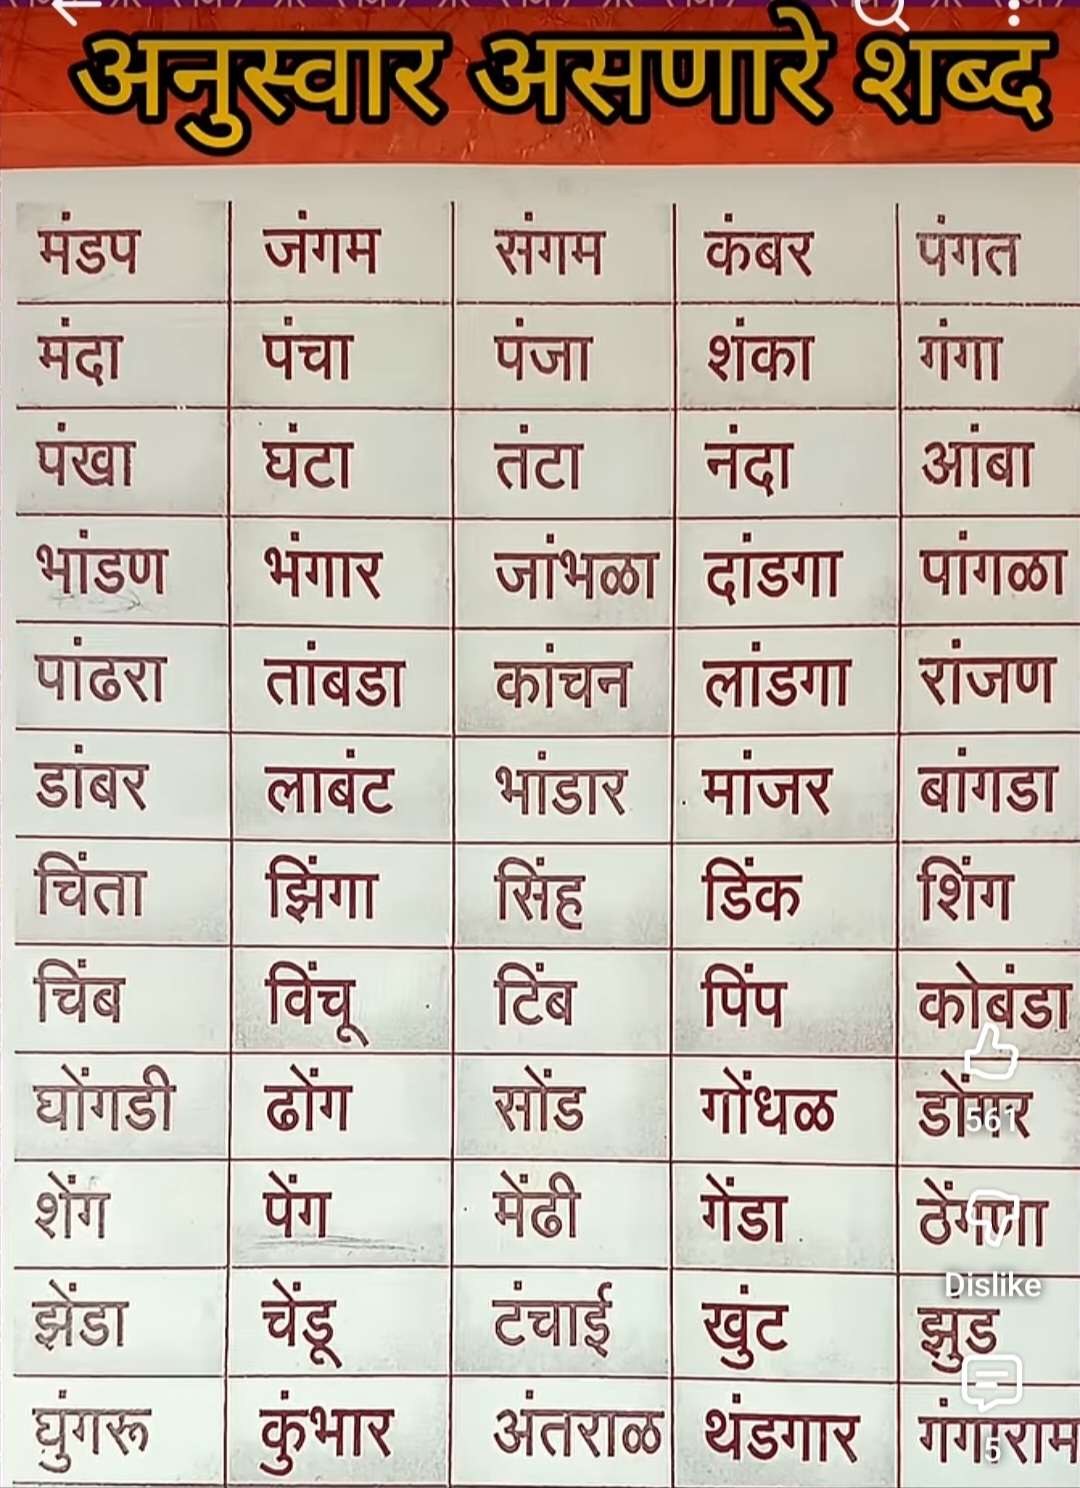 अनुस्वार असणारे शब्द
मंडप जंगम संगम कंबर पंगत
मंदा पंचा पंजा शंका गंगा
पंखा घंटा तंटा नंदा आंबा
भांडण भंगार जांभळा दांडगा पांगळा
पांढरा तांबडा कांचन लांडगा रांजण
डांबर लाबंट भांडार मांजर बांगडा
चिंता झिंगा सिंह डिंक शिंग
चिंब विंचू टिंब पिंप कोबंडा
घोंगडी ढोंग सोंड गोंधळ डोंगर
561
शेंग पेंग मेंढी गेंडा ठेंगणा
Dislike
झेंडा चेंडू टंचाई खुंट झुंड
घुंगरू कुंभार अंतराळ थंडगार गंगाराम
5